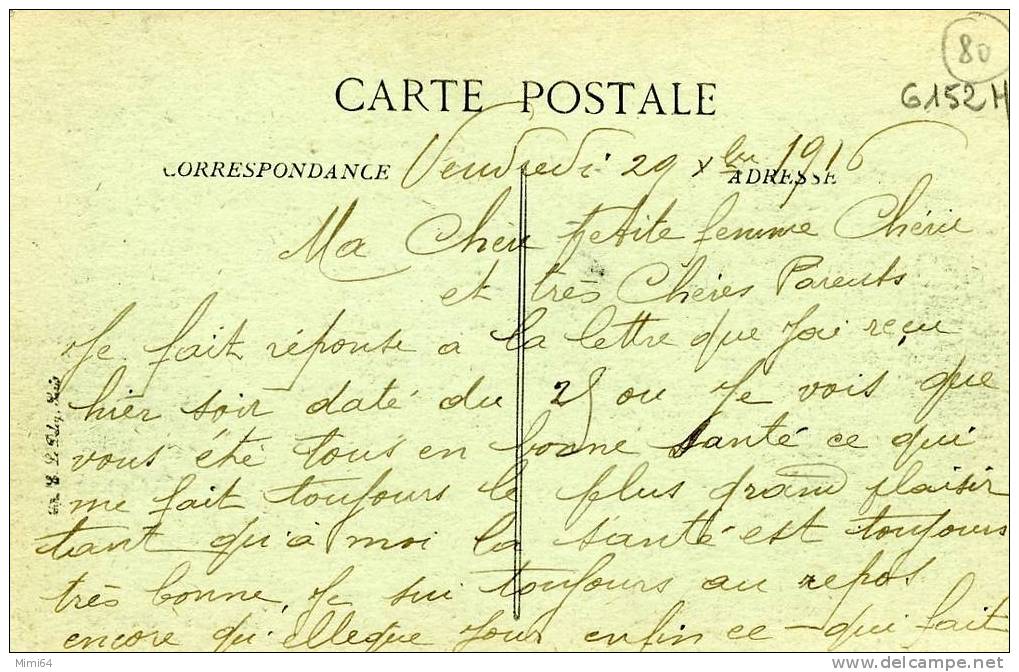 80
G152H
CARTE POSTALE
CORRESPONDANCE Vendredi 29 Xbre 1916 ADRESSE
Ma Chère petite femme Chérie
et très Chères Parents
Je fait réponse a la lettre que Jai reçu
hier soir daté du 25 ou Je vois que
vous été tous en bonne santé ce qui
me fait toujours le plus grand plaisir
tant qu'à moi la santé est toujours
très bonne, Je sui toujours au repos
encore qu'elleque Jour enfin ce qui fait
Mimi64
www.delcampe.net